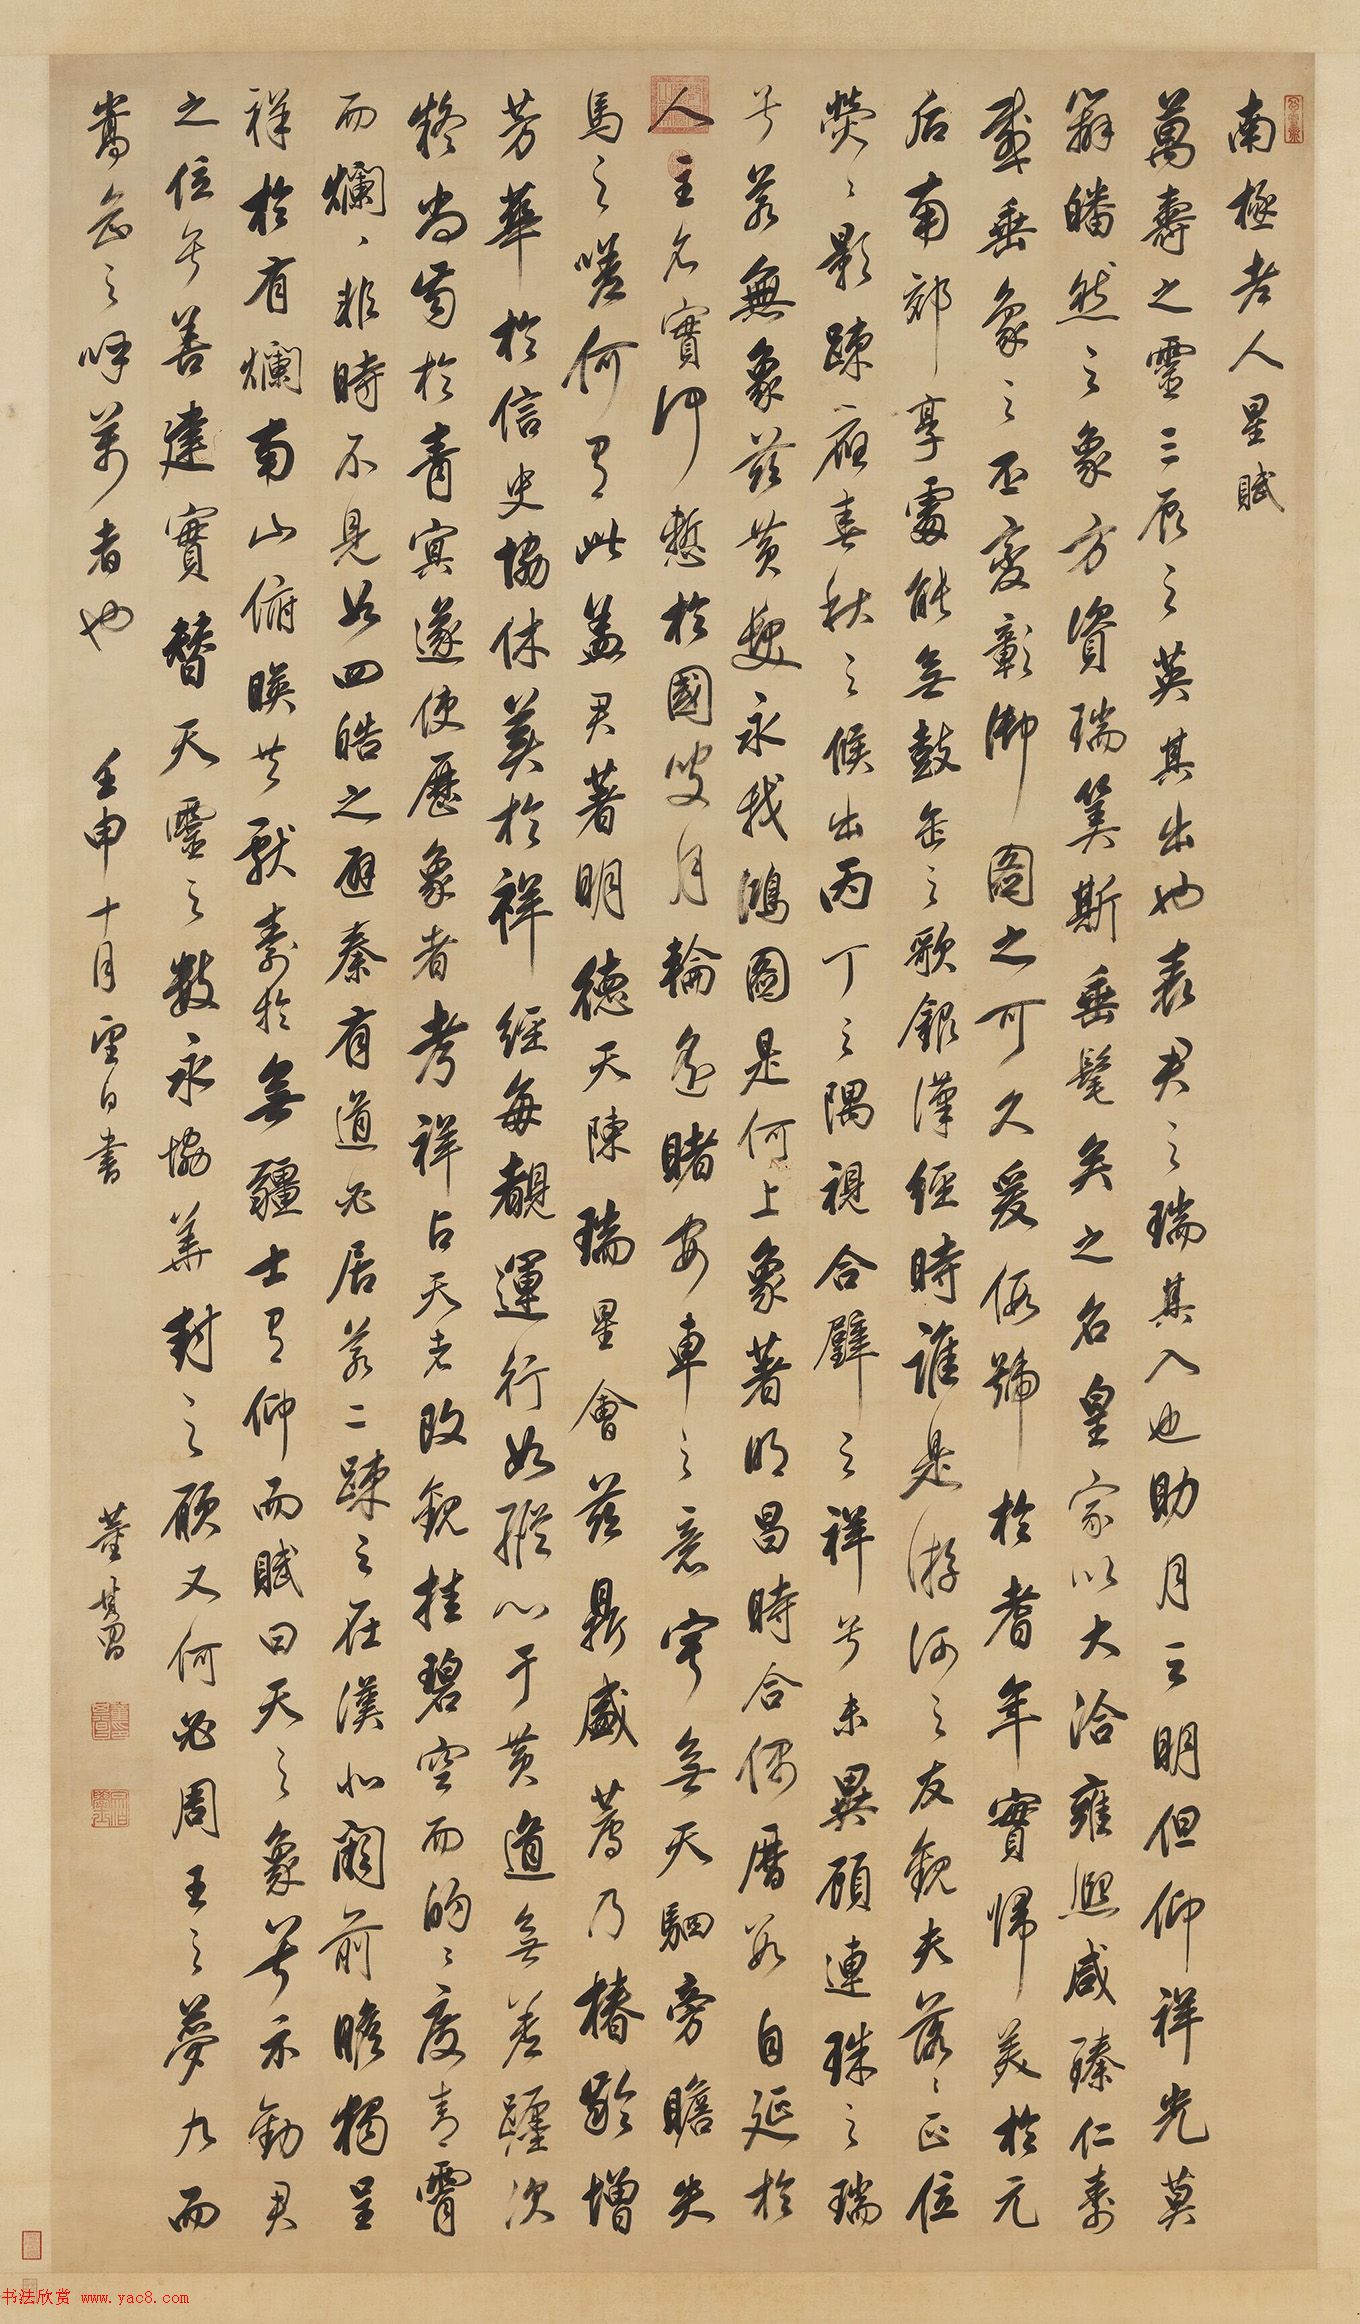 南極老人星賦
萬壽之靈三辰之英其出也表君之瑞其入也助月之明但仰祥光莫
辯皤然之象方資瑞筭斯垂髦矣之名皇家以大洽雍熙咸臻仁壽
感垂象之丕變彰御圖之可久爰假號於耆年實歸美於元
后南郊享處能無鼓缶之歌銀漢經時誰是游河之友觀夫落落正位
熒熒影疎應春秋之候出丙丁之隅視合璧之祥兮未異顧連珠之瑞
兮若無象茲黃髮永我鴻圖是何上象著明昌時合偶曆數自延於
人主名實仰慙於國叟月輪遙睹安車之意寧無天駟旁瞻失
馬之嗟何有此蓋君著明德天陳瑞星會茲鼎盛薦乃椿齡增
芳華於信史協休美於祥經每覩運行如縱心于黃道無差躔次
疑尚齒於青冥遂使歷象者考祥占天者改觀挂碧空而的的度青霄
而爛爛非時不見如四皓之避秦有道必居若二疎之在漢北闕前瞻獨呈
祥於有爛南山俯映共獻壽於無疆士有仰而賦曰天之象兮示勸君
之位兮善建實替天靈之數永協華封之願又何必周王之夢九而
嵩岳之呼萬者也
壬申十月望日書
董其昌
书法欣赏 www.yac8.com